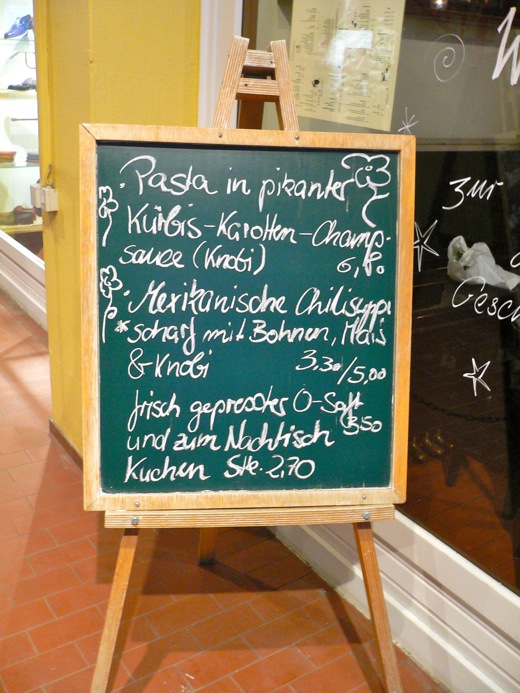 · Pasta in pikanter
Kürbis-Karotten-Champ.
sauce (Knobi)
· Mexikanische Chilisuppe
*scharf mit Bohnen, Mais
& Knobi 3,30/5,00
frisch gepresster O-Saft
3,50
und zum Nachtisch
Kuchen Stk. 2,70
zur
Gesch